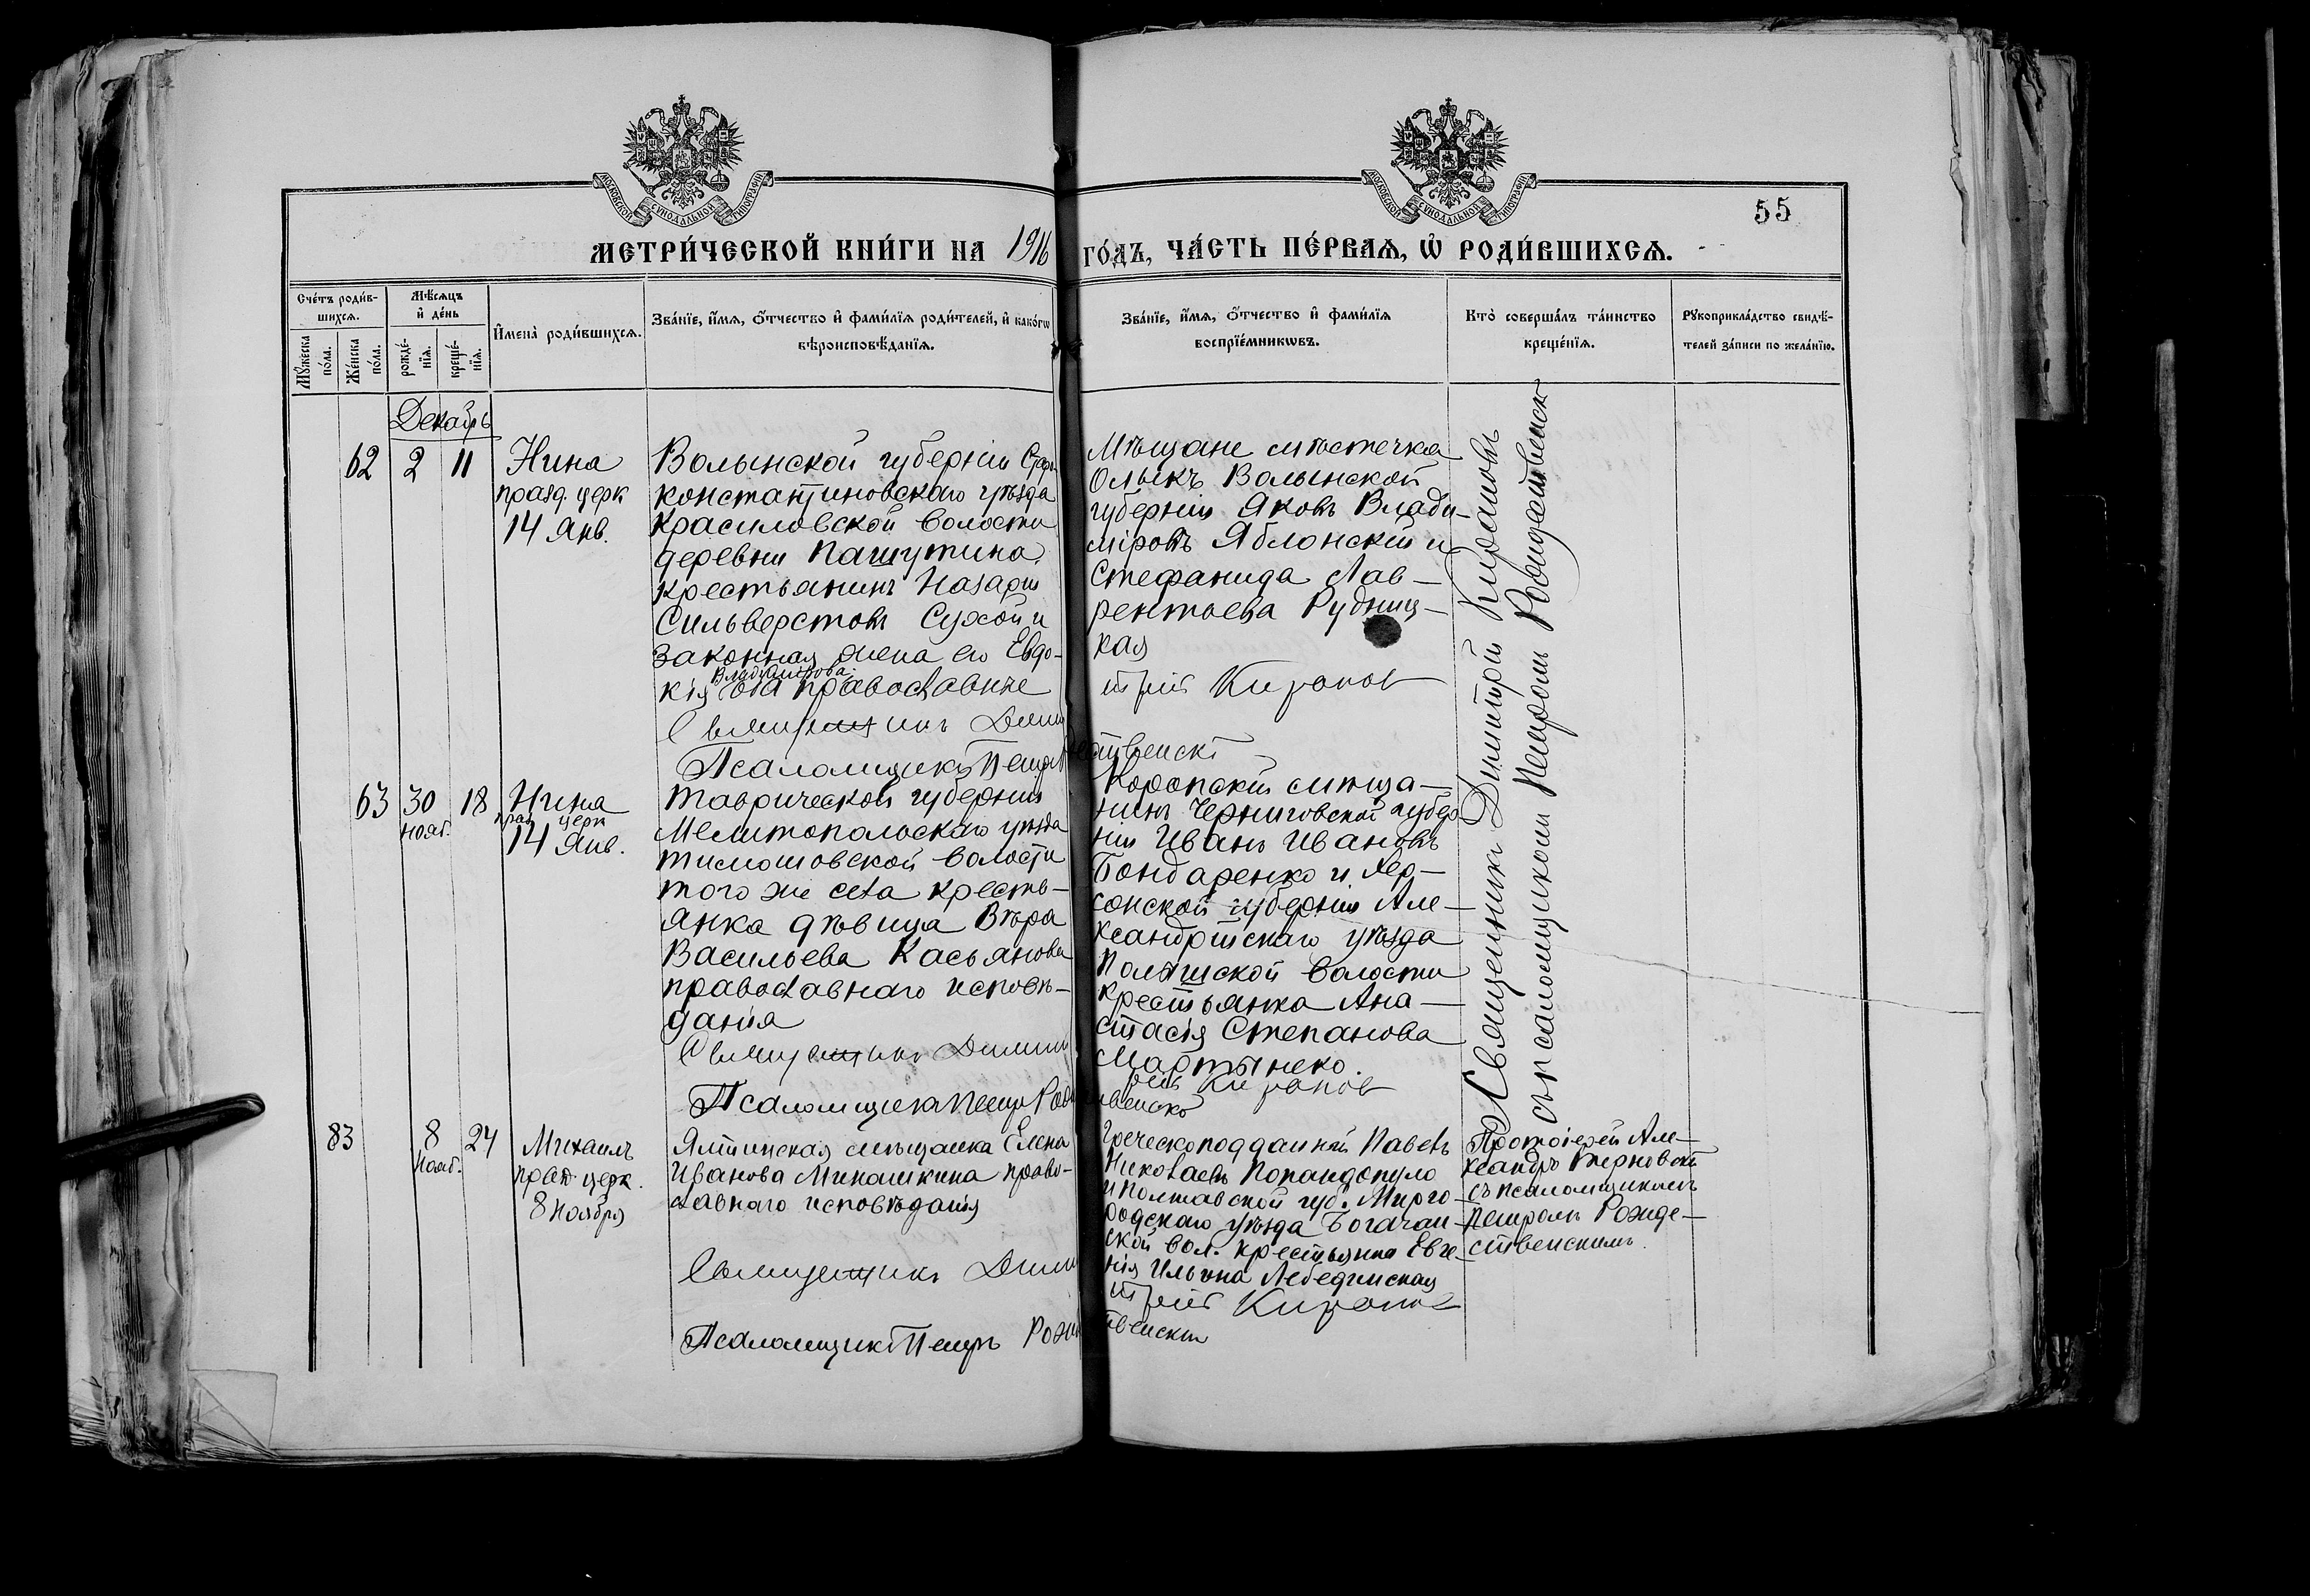 МОСКОВСКОЙ СУНОДАЛЬНОЙ ТИПОГРАФІИ
МОСКОВСКОЙ СУНОДАЛЬНОЙ ТИПОГРАФІИ
55
МЕТРИ́ЧЕСКОЙ КНИ́ГИ НА 1916 ГО́ДЪ, ЧА́СТЬ ПЕ́РВАѦ, Ѽ РОДИ́ВШИХСѦ.
Сче́тъ роди́в-
шихсѧ.
Мꙋ́жеска по́ла.
Же́нска по́ла.
Мѣ́сѧцъ и҆ де́нь
рожде́-
нїѧ.
креще́-
нїѧ.
И҆мена̀ роди́вшихсѧ.
Зва́нїе, и҆́мѧ, ѻ҆́тчество и҆ фами́лїѧ роди́телей, и҆ како́гѡ
вѣроисповѣ́данїѧ.
Зва́нїе, и҆́мѧ, ѻ҆́тчество и҆ фами́лїѧ
воспрїе́мникѡвъ.
Кто̀ соверша́лъ та́инство
креще́нїѧ.
Рꙋкоприкла́дство свидѣ́-
телей за́писи по жела́нїю.
Декабрь
62 2 11
Нина
празд. церк
14 Янв.
Волынской губерніи Старо-
константиновскаго уѣзда
Красиловской волости
деревни Пашутина
крестьянинъ Назарій
Сильверстовъ Сухой и
законная жена его Евдо-
Владимірова
кія оба православные
Священникъ Дими
Псаломщикъ Петръ
Мѣщане мѣстечка
Олыкъ Волынской
губерніи Яковъ Влади-
міровъ Яблонскій и
Стефанида Лав-
рентьева Рудниц-
кая
трій Кирановъ
ственскій
Священникъ Димитрій Кирановъ
съ псаломщикомъ Петромъ Рождественск
63 30 18
Нояб.
Нина
праз церк
14 Янв.
Таврической губерніи
Мелитопольскаго уѣзда
Тимошовской волости
того же села кресть-
янка дѣвица Вѣра
Васильева Касьянова
православнаго исповѣ-
данія
Священникъ Димит
Псаломщикъ Петръ Рожд
Коропскій мѣща-
нинъ Черниговской губер
ніи Иванъ Ивановъ
Бондаренко и Хер-
сонской губерніи Але-
ксандрійскаго уѣзда
волости
крестьянка Ана-
стасія Степанова
Мартынеко.
рій Кирановъ
твенскій
83 8 24
Нояб.
Михаилъ
празд. церк.
8 Ноября
Ялтинская мѣщанка Елена
Иванова Минашкина право-
славнаго исповѣданія
Священникъ Дими
Псаломщикъ Петръ Рожде
Греческоподданный Павелъ
Николаевъ Попандопуло
и Полтавской губ. Мирго-
родскаго уѣзда Богачан-
ской вол. крестьянка Евге-
нія Ильина Лебединская
трій Кирановъ
твенскій
Протоіерей Але-
ксандръ Терновскій
съ псаломщикомъ
Петромъ Рожде-
ственскимъ.